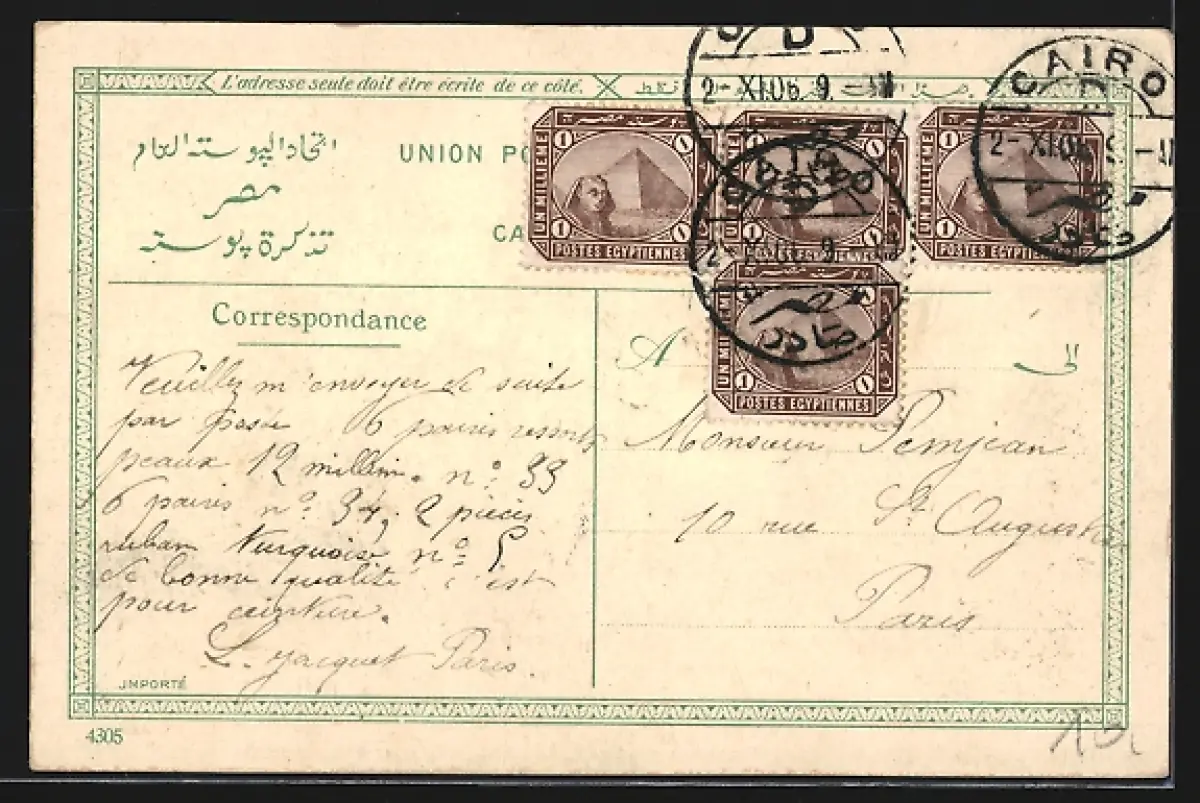 L'adresse seule doit être écrite de ce côté.
اتحاد البوسته العام
مصر
تذكرة بوسته
UNION PO
CA
UN MILLIEME
1
POSTES EGYPTIENNES
1
POSTES EGYPTIENNES
UN MILLIEME
1
POSTES EGYPTIENNES
UN MILLIEME
1
POSTES EGYPTIENNES
D
2-XI.06 9.-AM
CAIRO
D
2-XI.06
CAIRO
Correspondance
Veuillez m'envoyer de suite
par poste 6 paires ressorts
peaux 12 millim. nº 33
6 paires nº 34, 2 pièces
ruban Turquoise nº 5
de bonne qualité c'est
pour ceinture.
L. Jacquet Paris.
A
الى
Monsieur Pemjean
10 rue St. Augustin
Paris
IMPORTÉ
4305